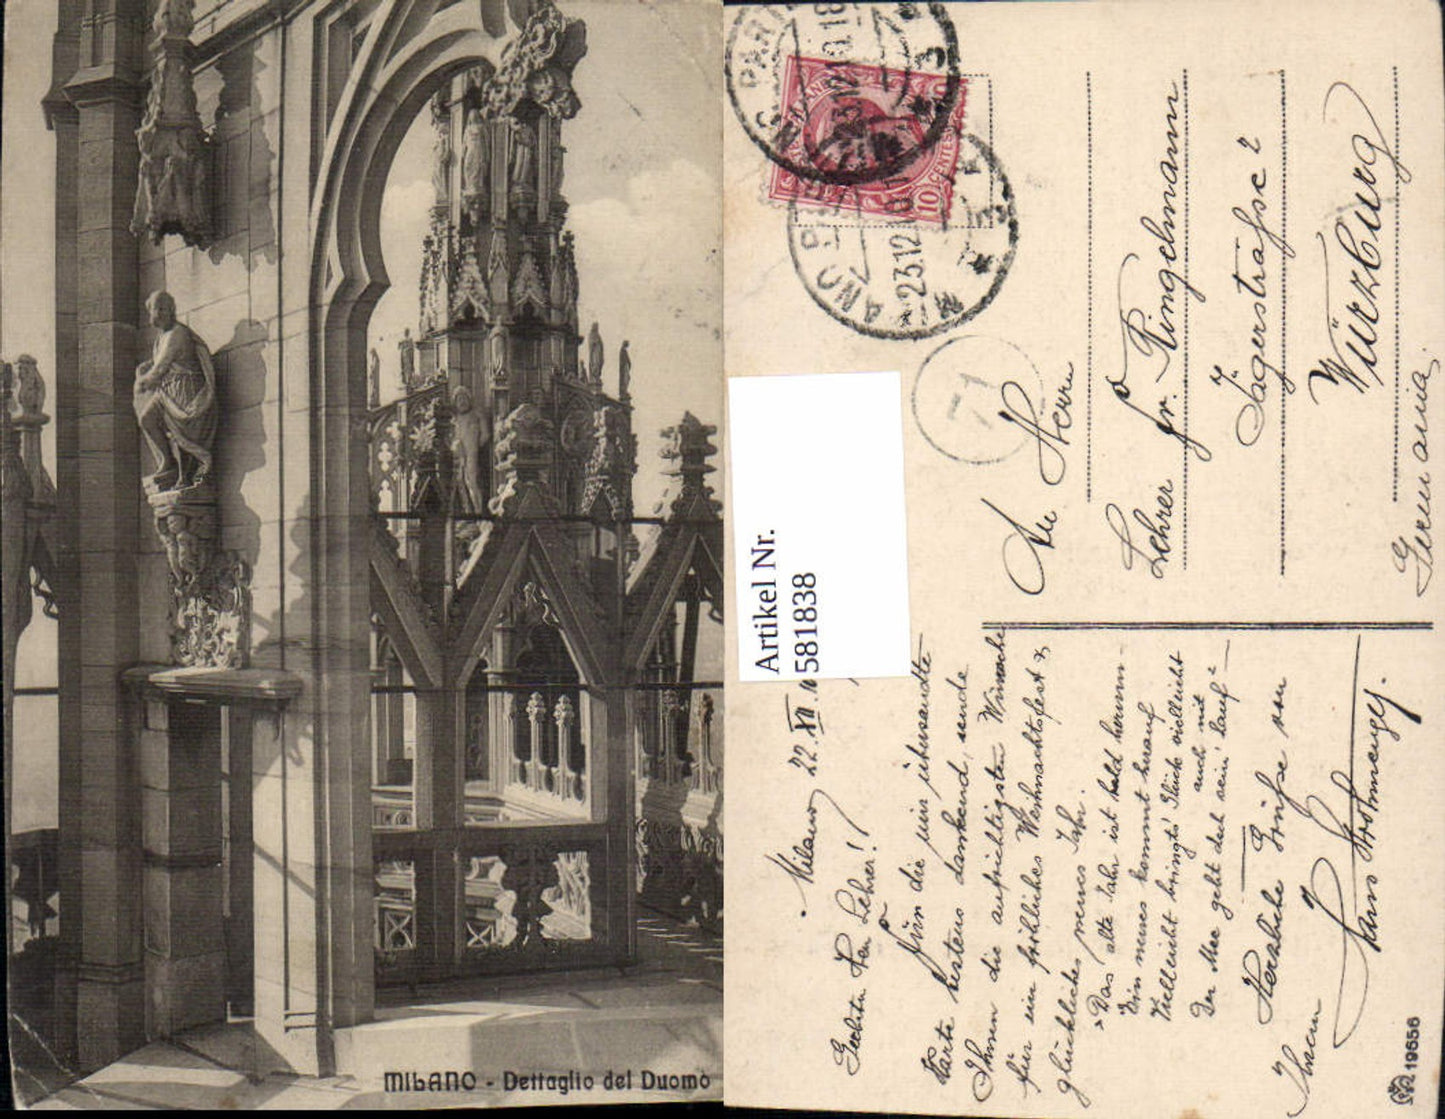 MILANO - Dettaglio del Duomo
Artikel Nr.
581838
10 CENTES
MILANO
23.12
71
An Herrn
Lehrer Fr. Ringelmann
Jägerstraße 2
Würzburg
Germania
Milano 22.XII.
Geehrter Herr Lehrer!
Für die mir übersandte
Karte bestens dankend, sende
Ihnen die aufrichtigsten Wünsche
für ein fröhliches Weihnachtsfest &
glückliches neues Jahr.
"Das alte Jahr ist bald herum -
Ein neues kommt herauf
Vielleicht bringts' Glück vielleicht
auch mit
Der Mee geht doch sein' Lauf"
Herzliche Grüße von
Ihrem
Hans Strohmenger.
19656